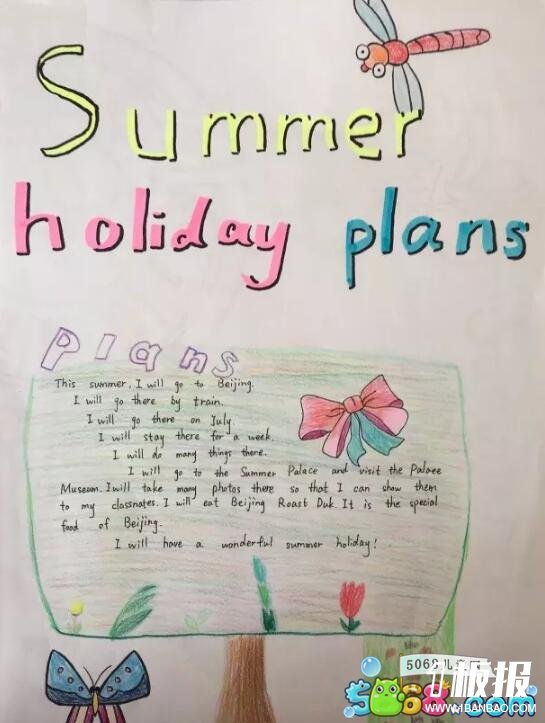 Summer
holiday plans
Plans
This summer, I will go to Beijing.
I will go there by train.
I will go there on July.
I will stay there for a week.
I will do many things there.
I will go to the Summer Palace and visit the Palace
Museum. I will take many photos there so that I can show them
to my classmates. I will eat Beijing Roast Duk. It is the special
food of Beijing.
I will have a wonderful summer holiday!
5068儿
板报
5068.com
WWW.1BANBAO.COM